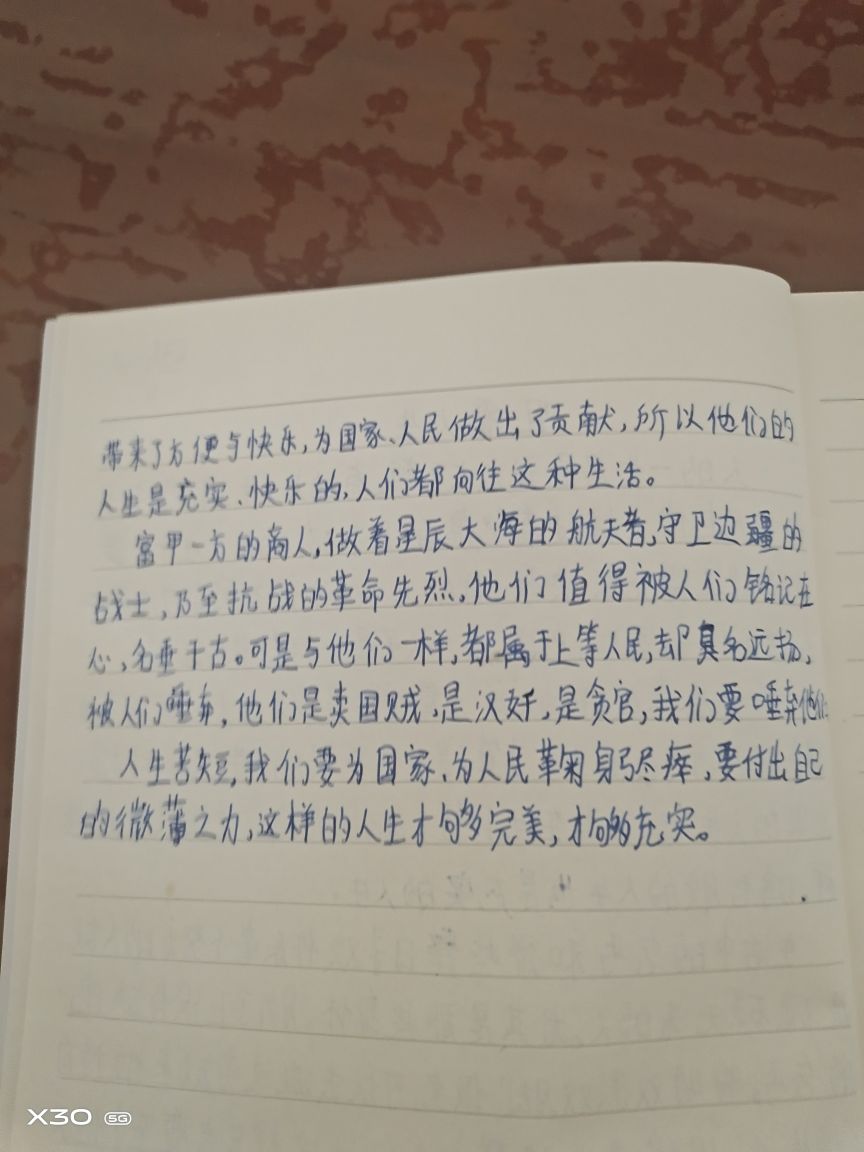 带来了方便与快乐,为国家、人民做出了贡献,所以他们的
人生是充实、快乐的,人们都向往这种生活。
富甲一方的商人,做着星辰大海的航天者,守卫边疆的
战士,乃至抗战的革命先烈,他们值得被人们铭记在
心,名垂千古。可是与他们一样,都属于上等人民,却臭名远扬,
被人们唾弃,他们是卖国贼,是汉奸,是贪官,我们要唾弃他们
人生苦短,我们要为国家、为人民鞠躬尽瘁,要付出自己
的微薄之力,这样的人生才够多完美,才够充实。
X30 5G